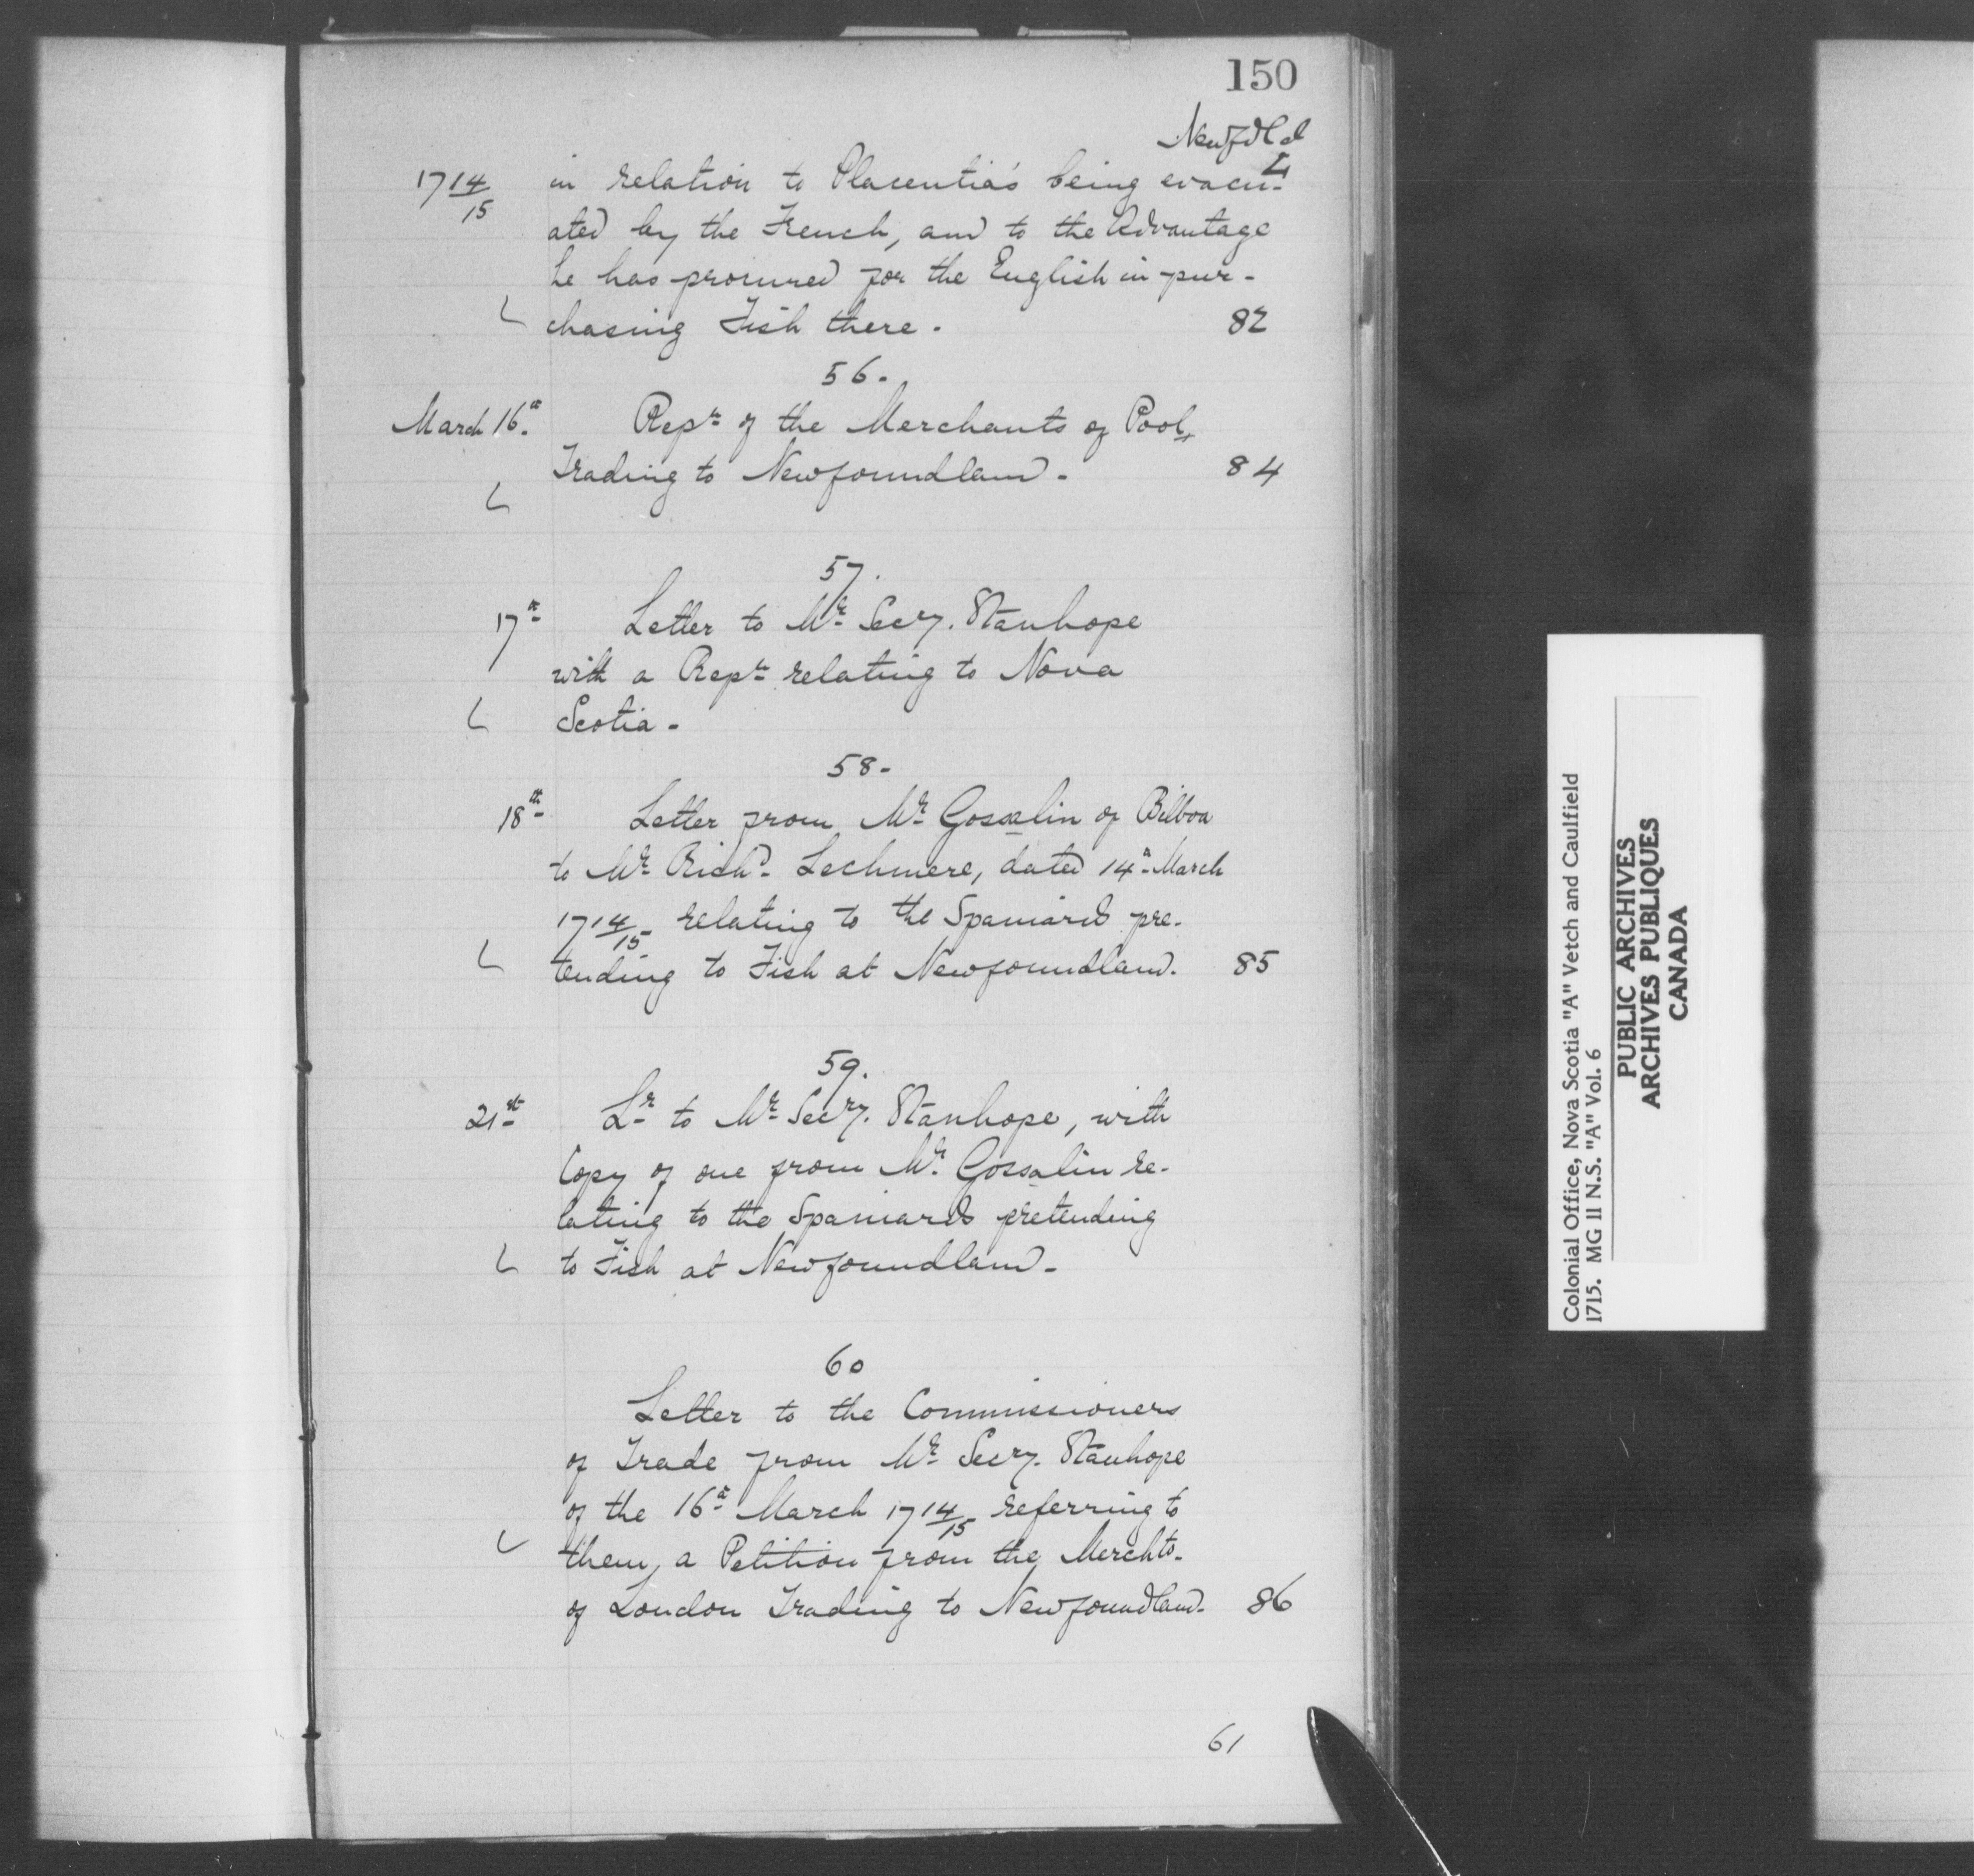 150
Newfdld
4
1714/15 in relation to Placentia's being evacu-
ated by the French, and to the Advantage
he has procured for the English in pur-
chasing Fish there. 82
56.
March 16th. Repn of the Merchants of Pool,
Trading to Newfoundland. 84
57.
17th Letter to Mr Secry. Stanhope
with a Repn relating to Nova
Scotia.
58.
18th Letter from Mr Gosselin of Bilboa
to Mr Richd. Lechmere, dated 14th March
1714/15 relating to the Spaniards pre-
tending to Fish at Newfoundland. 85
59.
21st Lr to Mr Secry. Stanhope, with
Copy of one from Mr. Gosselin re-
lating to the Spaniards pretending
to Fish at Newfoundland.
60
Letter to the Commissioners
of Trade from Mr Secry. Stanhope
of the 16th March 1714/15 referring to
them, a Petition from the Merchts.
of London Trading to Newfoundland. 86
61
Colonial Office, Nova Scotia "A" Vetch and Caulfield
1715. MG 11 N.S. "A" Vol. 6
PUBLIC ARCHIVES
ARCHIVES PUBLIQUES
CANADA